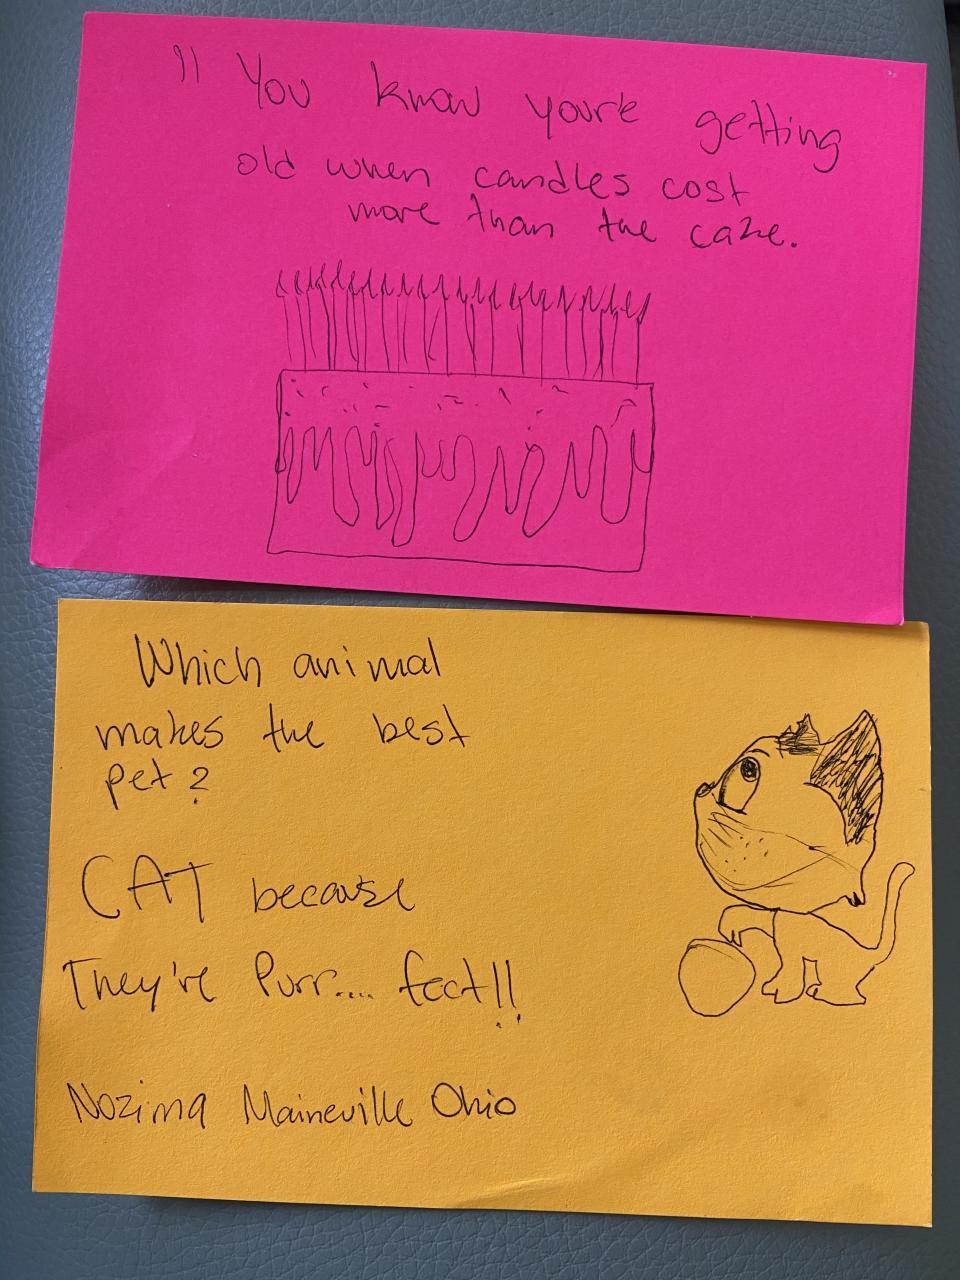 " You know you're getting
old when candles cost
more than the cake.
Which animal
makes the best
pet?
CAT because
They're Purr.... fect!!
Nozima Maineville Ohio